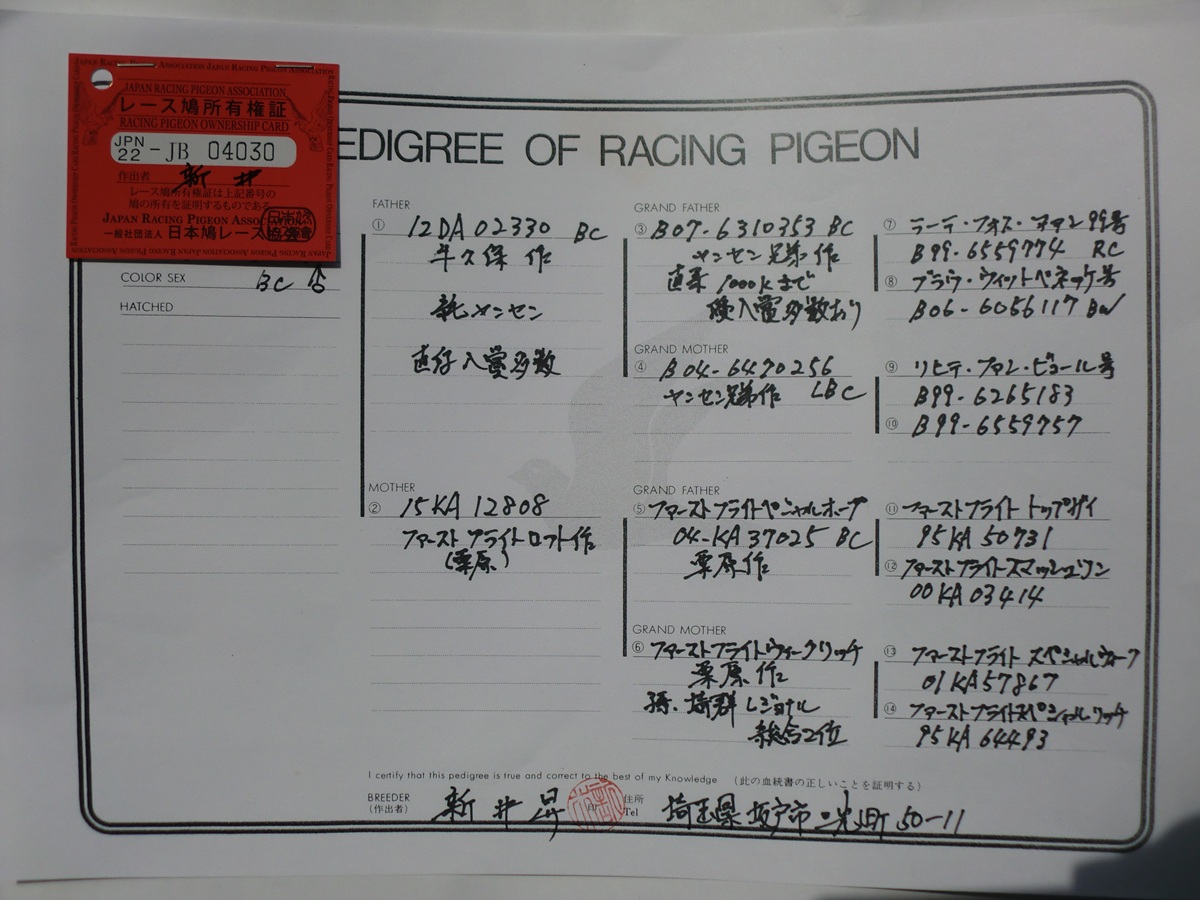 JAPAN RACING PIGEON ASSOCIATION
レース鳩所有権証
RACING PIGEON OWNERSHIP CARD
JPN 22 - JB 04030
作出者 新井
レース鳩所有権証は上記番号の
鳩の所有を証明するものである
JAPAN RACING PIGEON ASSOC
一般社団法人 日本鳩レース協会
EDIGREE OF RACING PIGEON
COLOR SEX BC ♂
HATCHED
FATHER
① 12DA02330 BC
作
ヤンセン
直仔入賞多数
MOTHER
② 15KA12808
ファーストフライトロフト作
(栗原)
GRAND FATHER
③ B07-6310353 BC
ヤンセン兄弟作
直系1000Kまで
入賞多数あり
GRAND MOTHER
④ B04-6470256
ヤンセン兄弟作 LBC
GRAND FATHER
⑤ ファーストフライトペシャルホープ
04-KA37025 BC
栗原作
GRAND MOTHER
⑥ ファーストフライトウィークリッチ
栗原作
孫、埼群レジョナル
総合2位
⑦
B99-6559774 RC
⑧ ブラウ・ウィットペネッケ号
B06-6056117 BW
⑨ リヒテ・ファン・ビュール号
B99-6265183
⑩ B99-6559757
⑪ ファーストフライトトップガイ
95KA50731
⑫ ファーストフライトスマッシュワン
00KA03414
⑬ ファーストフライトスペシャルウィーク
01KA57867
⑭ ファーストフライトスペシャルリッチ
95KA64493
I certify that this pedigree is true and correct to the best of my Knowledge (此の血統書の正しいことを証明する)
BREEDER
(作出者)
新井昇
住所
Tel
埼玉県坂戸市 町50-11